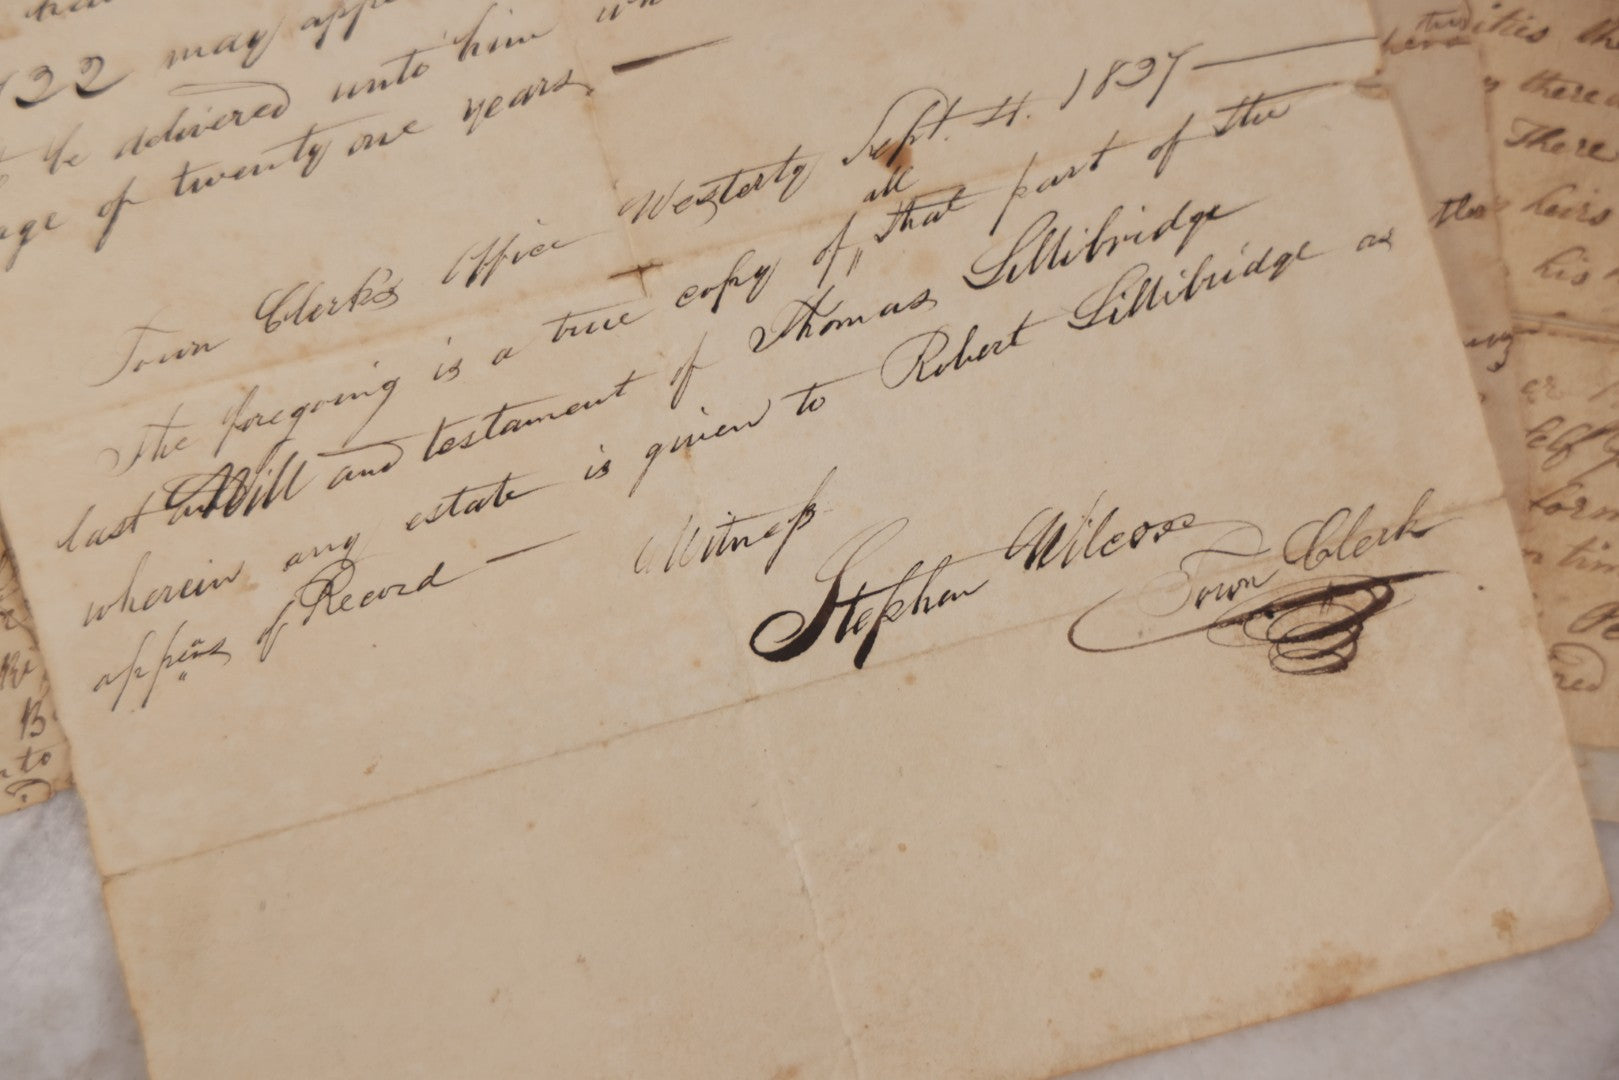 may
be delivered unto him
age of twenty one years
Town Clerks Office Westerly Sept. 4. 1837
all
The foregoing is a true copy of that part of the
last Will and testament of Thomas Lillibridge
wherein any estate is given to Robert Lillibridge as
appears of Record — Witness
Stephen Wilcox
Town Clerk
there
There
heirs
his
the
Self
form
tim
B
to